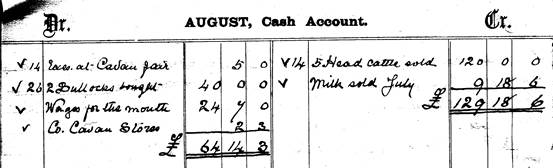 Dr. AUGUST, Cash Account. Cr.
√ 14 Exes. at Cavan fair 5 0 √ 14 5 Head cattle sold 120 0 0
√ 26 2 Bullocks bought 40 0 0 √ Milk sold July 9 18 6
√ Wages for the month 24 7 0 £ 129 18 6
√ Co. Cavan Stores 2 3
£ 64 14 3